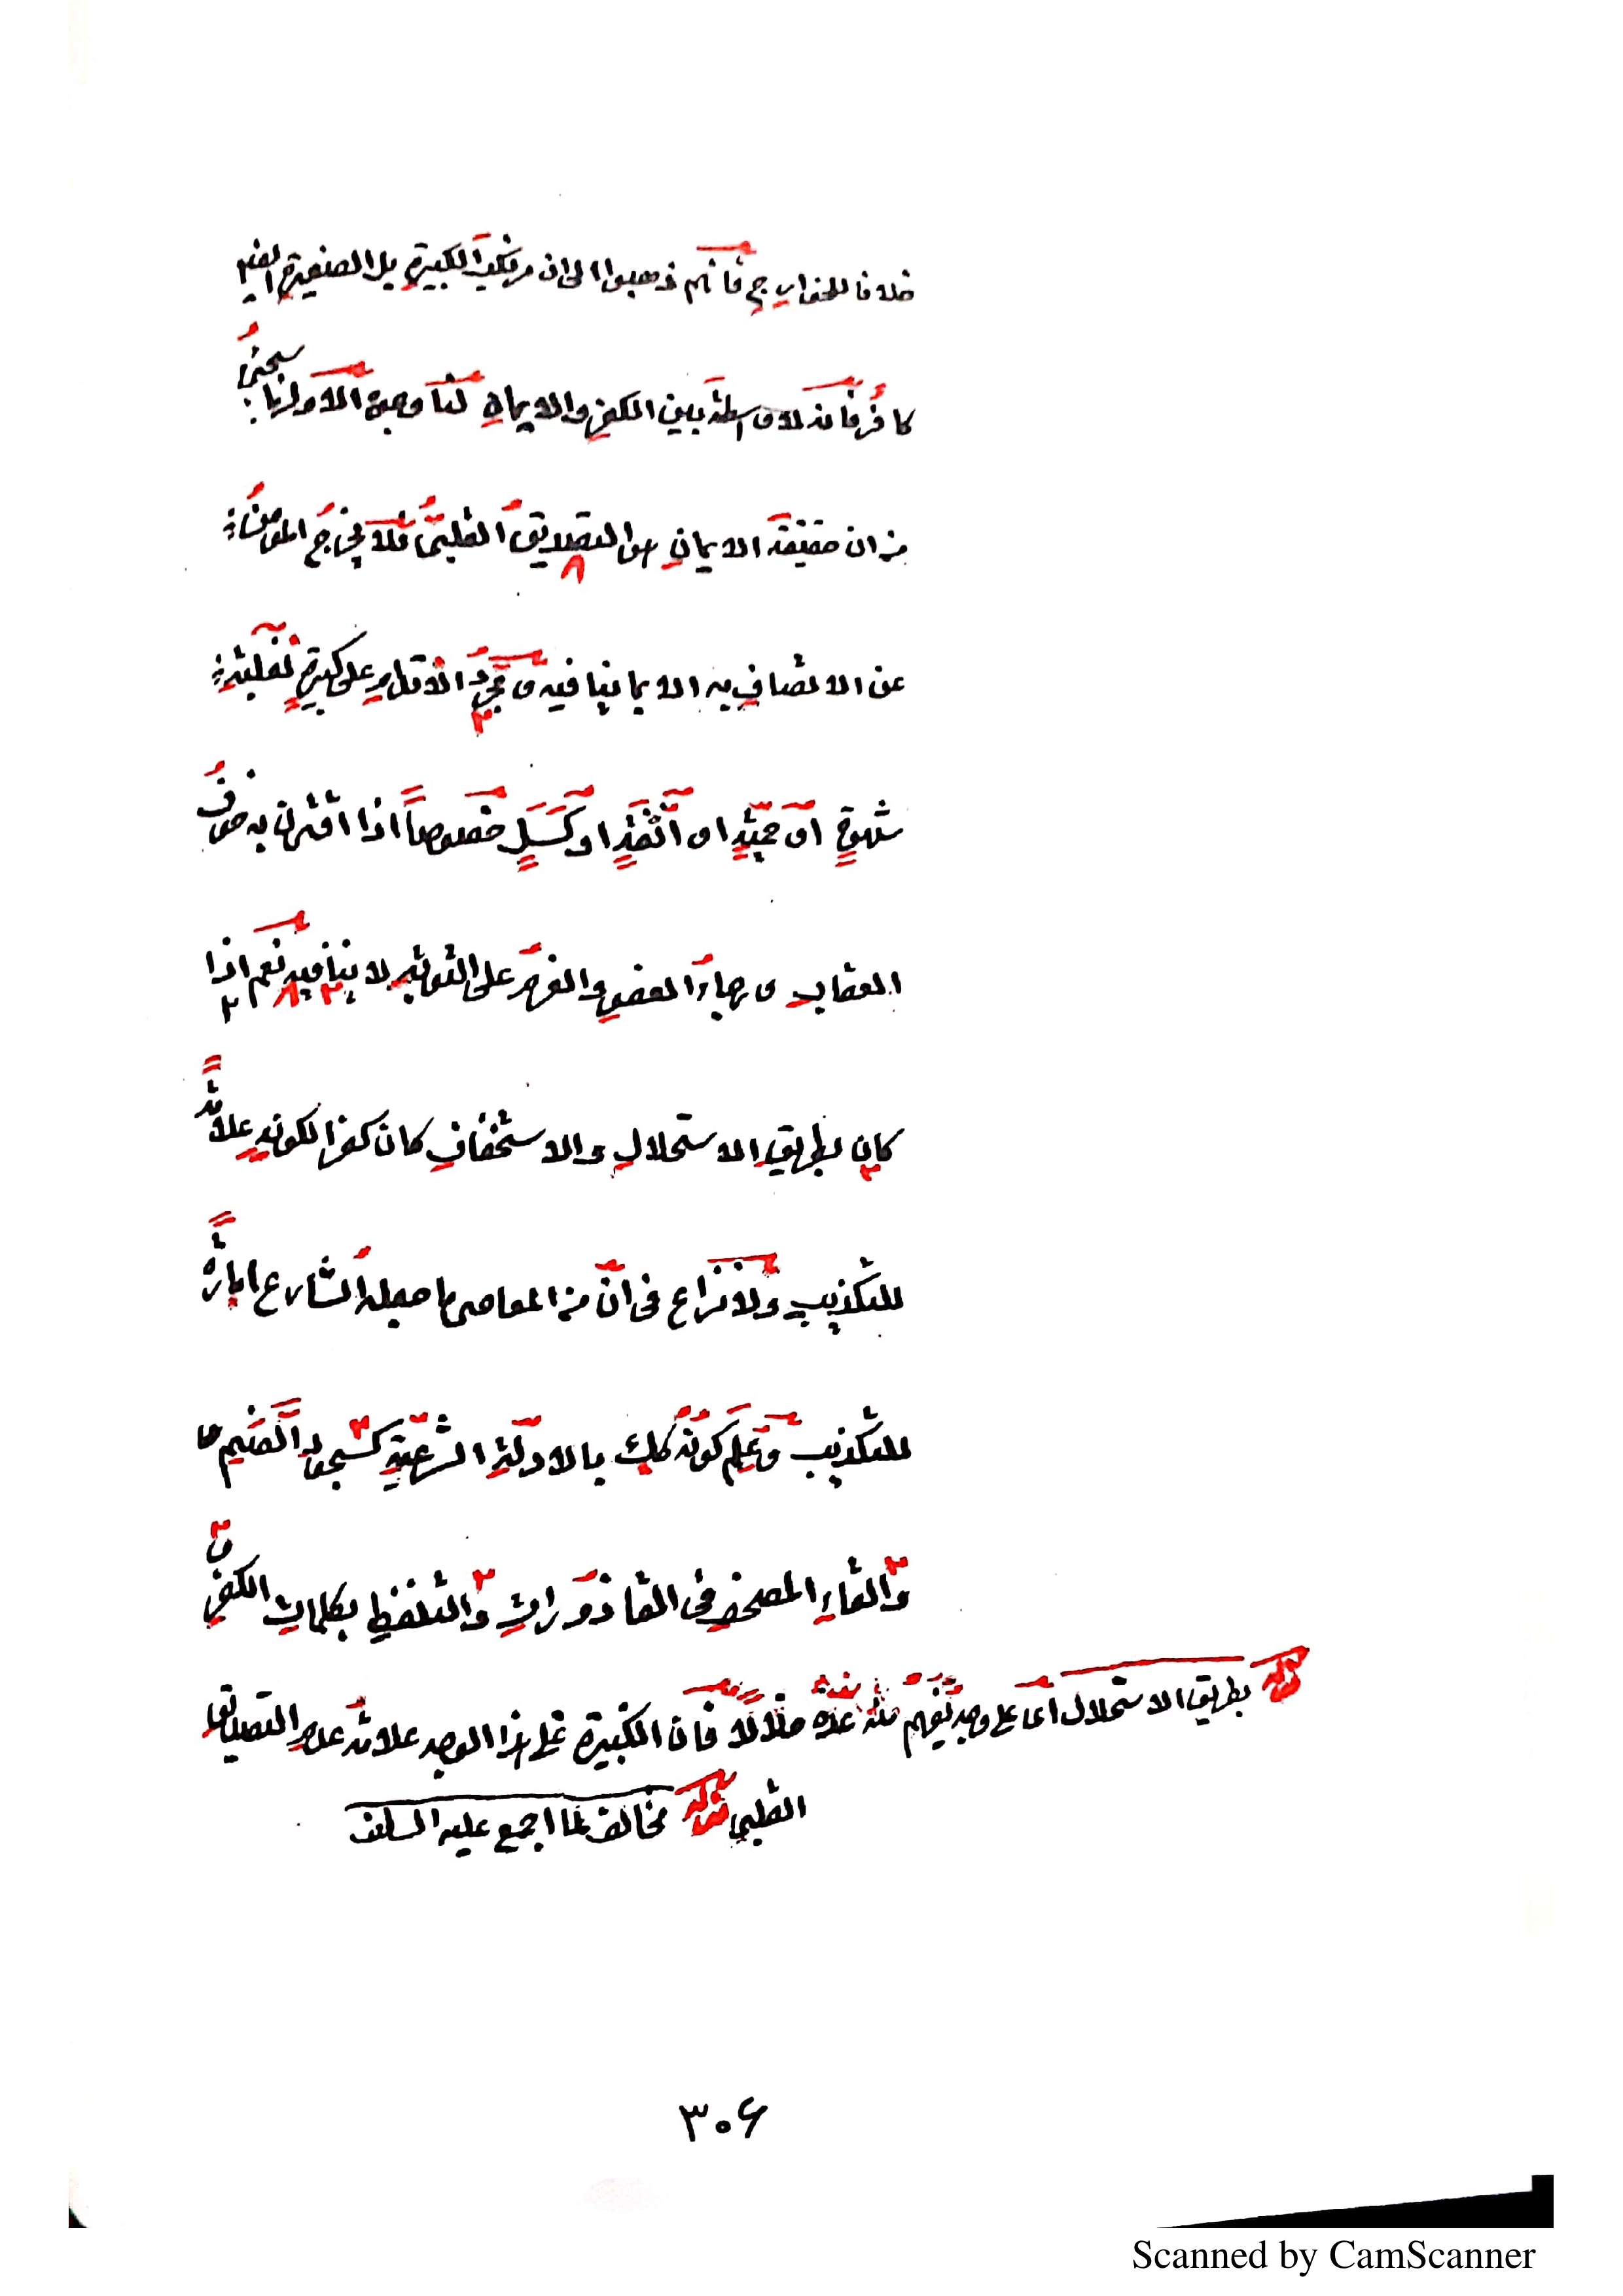 خلافا للخوارج فانهم ذهبوا الى ان مرتكب الكبيرة بل الصغيرة ايضا
كافر فانه لا واسطة بين الكفر والايمان لنا وجوه الاول ما سيجئ
من ان حقيقة الايمان هو التصديق القلبي فلا يخرج المؤمن
عن الاتصاف به الا بما ينافيه ومجرد الاقدام على كبيرة لغلبة
شهوة او حمية او انفة او كسل خصوصا اذا اقترن به خوف
العقاب ورجاء العفو والعزم على التوبة لا ينافيه نعم اذا
كان بطريق الاستحلال والاستخفاف كان كفرا لكونه علامة
للتكذيب ولا نزاع فى ان من المعاصى ما جعله الشارع امارة
للتكذيب وعلم كونه كك بالادلة الشرعية كسجود الصنم
والقاء المصحف فى القاذورات والتلفظ بكلمات الكفر و
بطريق الاستحلال اى على وجه يفهم منه عده حلالا فان الكبيرة على هذا الوجه علامة عدم التصديق
القلبي مخالف لما اجمع عليه السلف
٣٠۶
Scanned by CamScanner